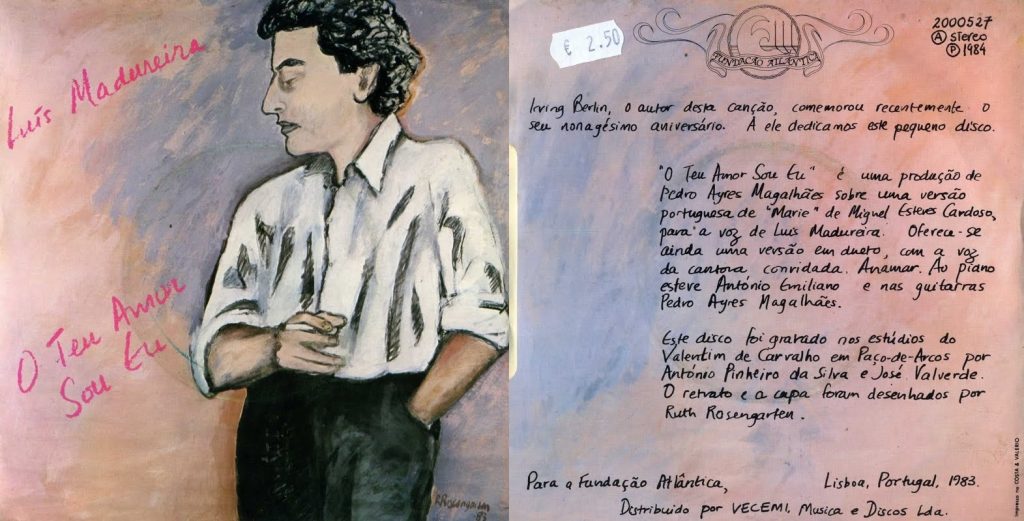 Luís Madureira
O Teu Amor
Sou Eu
R Rosengarten
83
€ 2.50
FUNDAÇÃO ATLÂNTICA
2000527
A stereo
P 1984
Irving Berlin, o autor desta canção, comemorou recentemente o
seu nonagésimo aniversário. A ele dedicamos este pequeno disco.
"O Teu Amor Sou Eu" é uma produção de
Pedro Ayres Magalhães sobre uma versão
portuguesa de "Marie" de Miguel Esteves Cardoso,
para a voz de Luís Madureira. Oferece-se
ainda uma versão em dueto, com a voz
da cantora convidada, Anamar. Ao piano
esteve António Emiliano e nas guitarras
Pedro Ayres Magalhães.
Este disco foi gravado nos estúdios do
Valentim de Carvalho em Paço-de-Arcos por
António Pinheiro da Silva e José Valverde.
O retrato e a capa foram desenhados por
Ruth Rosengarten.
Para a Fundação Atlântica,
Lisboa, Portugal, 1983.
Distribuido por VECEMI, Musica e Discos Lda.
Impresso na COSTA & VALERIO